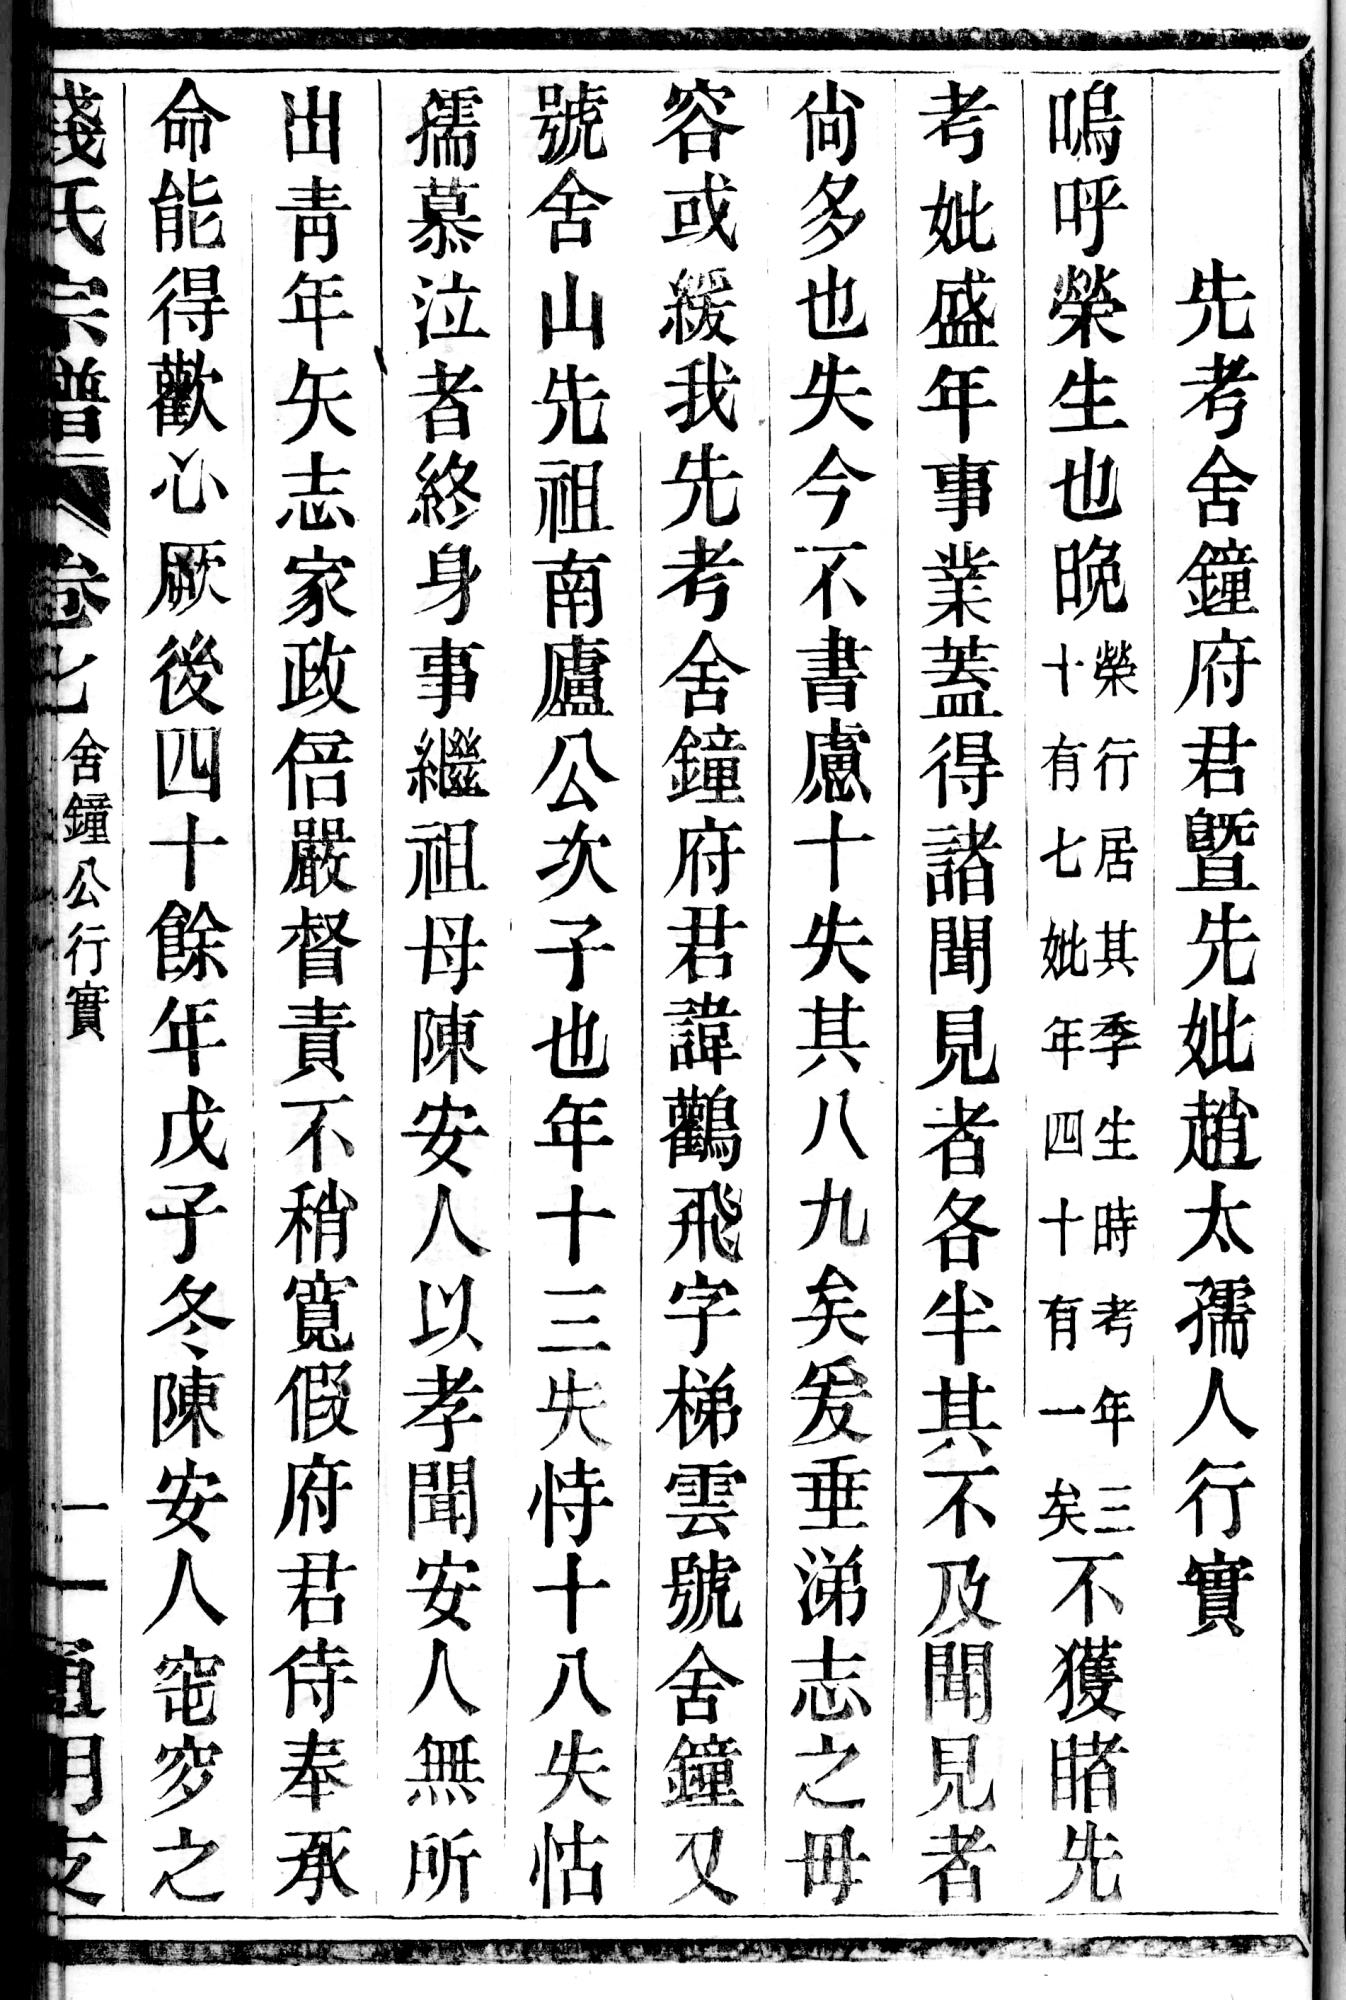 先考舍鐘府君曁先妣趙太孺人行實
嗚呼榮生也晚榮行居其季生時考年三十有七妣年四十有一矣不獲睹先
考妣盛年事業蓋得諸聞見者各半其不及聞見者
尙多也失今不書慮十失其八九矣爰垂涕志之毋
容或緩我先考舍鐘府君諱鸛飛字梯雲號舍鐘又
號舍山先祖南廬公次子也年十三失恃十八失怙
孺慕泣者終身事繼祖母陳安人以孝聞安人無所
出靑年矢志家政倍嚴督責不稍寬假府君侍奉承
命能得歡心厥後四十餘年戊子冬陳安人窀穸之
錢氏宗譜 卷七 舍鐘公行實 一 通明支